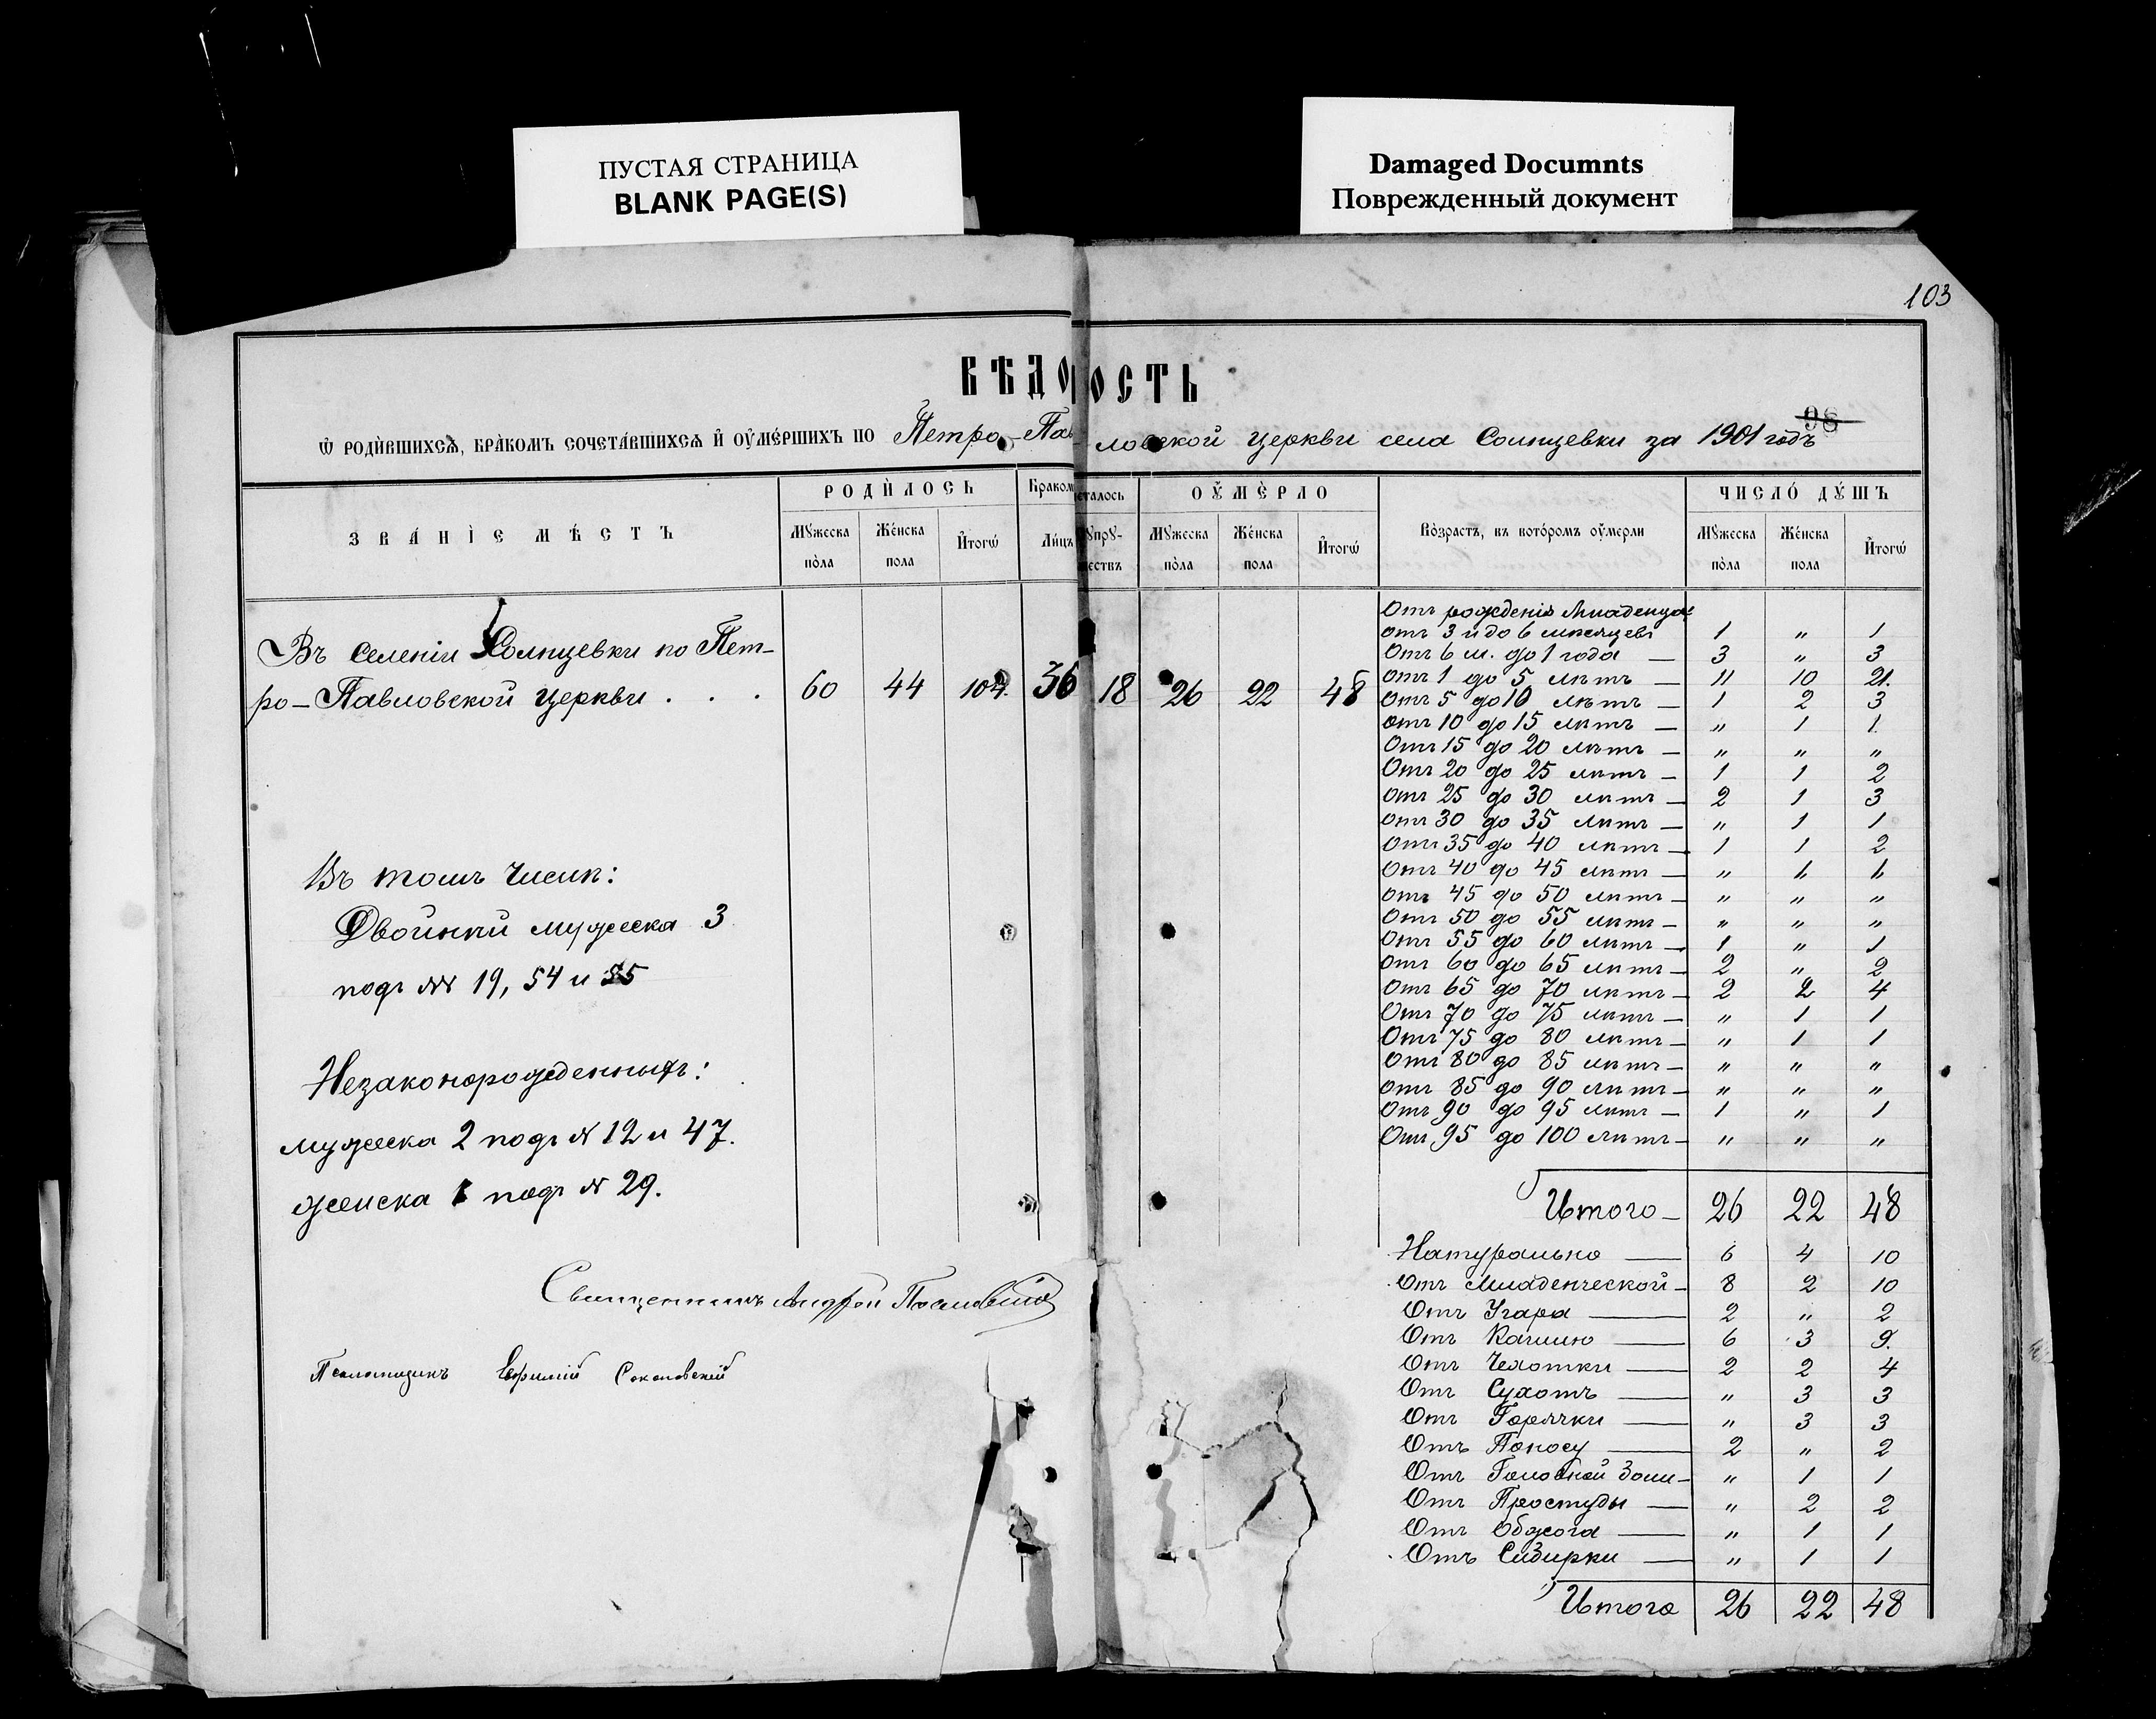 ПУСТАЯ СТРАНИЦА
BLANK PAGE(S)
Damaged Documnts
Поврежденный документ
103
ВѢДОМОСТЬ
98
Ѡ РОДИ́ВШИХСѦ, БРА́КОМЪ СОЧЕТА́ВШИХСѦ И҆ ОУ҆МЕ́РШИХЪ ПО Петро-Павловской церкви села Солнцевки за 1901 годъ
ЗВА́НІЕ МѢ́СТЪ
РОДИ́ЛОСЬ
Мꙋжеска по́ла
Же́нска пола
И҆тогѡ̀
Браком
Ли́цъ
талось
ꙋпрꙋ-
ествъ
ОУ҆МЕ́РЛО
Мꙋжеска по́ла
Же́нска пола
И҆тогѡ̀
Во́зрастъ, въ кото́ромъ оу҆мерли
ЧИСЛО́ ДꙊ́ШЪ
Мꙋжеска по́ла
Же́нска пола
И҆тогѡ̀
Въ селеніи Солнцевки по Пет-
ро-Павловской церкви . . . 60 44 104. 36 18 26 22 48
Въ томъ числѣ:
Двойнки мужеска 3
подъ №№ 19, 54 и 55
Незаконорожденныхъ:
мужеска 2 подъ № 12 и 47.
женска 1 подъ № 29.
Священникъ Андрей
Псаломщикъ Ефимій Соколовскій
Отъ рожденія младенца:
отъ 3 и до 6 мѣсяцевъ 1 „ 1
Отъ 6 м. до 1 года — 3 „ 3
отъ 1 до 5 лѣтъ — 11 10 21.
Отъ 5 до 10 лѣтъ — 1 2 3
отъ 10 до 15 лѣтъ — „ 1 1.
Отъ 15 до 20 лѣтъ — „ „ „
Отъ 20 до 25 лѣтъ — 1 1 2
отъ 25 до 30 лѣтъ — 2 1 3
отъ 30 до 35 лѣтъ — „ 1 1
Отъ 35 до 40 лѣтъ — 1 1 2
Отъ 40 до 45 лѣтъ — „ 1 1
отъ 45 до 50 лѣтъ — „ „ „
Отъ 50 до 55 лѣтъ — „ „ „
Отъ 55 до 60 лѣтъ — 1 „ 1
отъ 60 до 65 лѣтъ — 2 „ 2
Отъ 65 до 70 лѣтъ — 2 2 4
Отъ 70 до 75 лѣтъ — „ 1 1
Отъ 75 до 80 лѣтъ — „ 1 1
Отъ 80 до 85 лѣтъ — „ „ „
отъ 85 до 90 лѣтъ — „ „ „
Отъ 90 до 95 лѣтъ — 1 „ 1
Отъ 95 до 100 лѣтъ — „ „ „
Итого — 26 22 48
Натурально — 6 4 10
Отъ Младенческой — 8 2 10
Отъ Угара — 2 „ 2
Отъ Кашлю — 6 3 9.
Отъ Чехотки — 2 2 4
Отъ Сухотъ — „ 3 3
Отъ Горячки — „ 3 3
Отъ Поносу — 2 „ 2
Отъ Головной боли — „ 1 1
Отъ Простуды — „ 2 2
Отъ Обжога — „ 1 1
Отъ Сибирки — „ 1 1
Итого 26 22 48